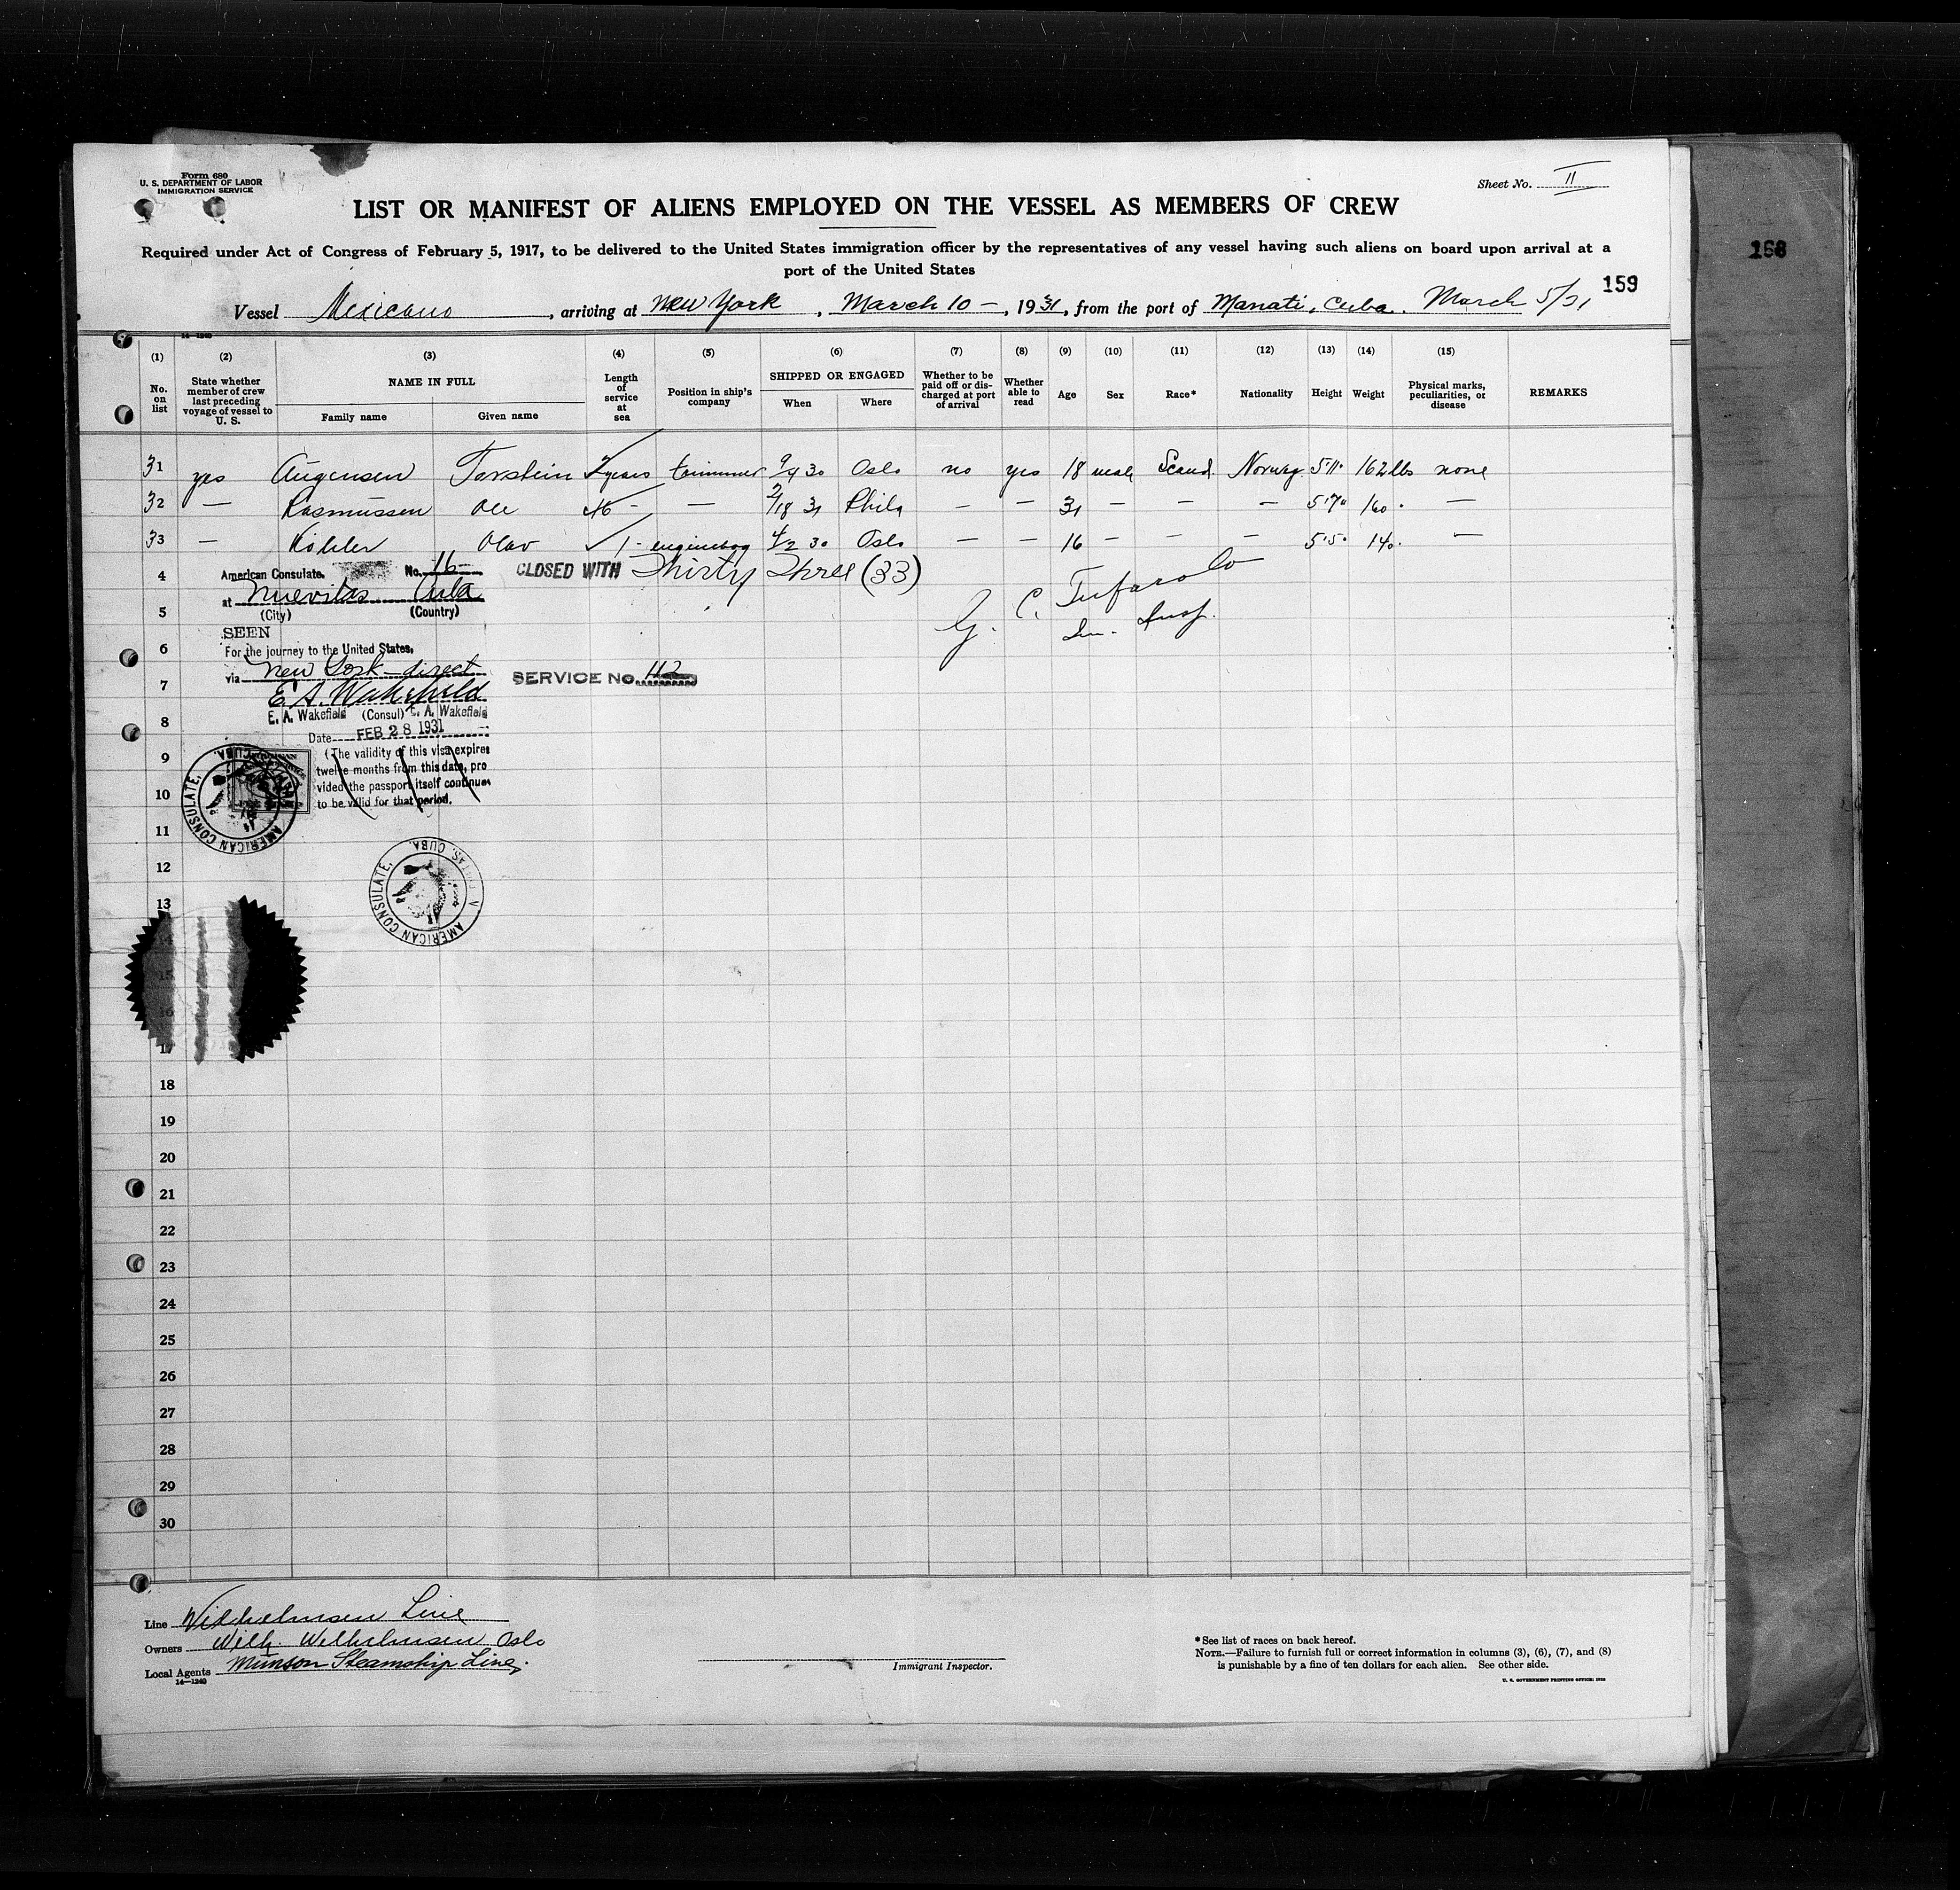 Form 680
U. S. DEPARTMENT OF LABOR
IMMIGRATION SERVICE
Sheet No. II
LIST OR MANIFEST OF ALIENS EMPLOYED ON THE VESSEL AS MEMBERS OF CREW
Required under Act of Congress of February 5, 1917, to be delivered to the United States immigration officer by the representatives of any vessel having such aliens on board upon arrival at a
port of the United States
158
159
Vessel Mexicano, arriving at New York, March 10 —, 1931, from the port of Manati, Cuba. March 5/31
14—1240
(1) (2) (3) (4) (5) (6) (7) (8) (9) (10) (11) (12) (13) (14) (15)
No. on list
State whether member of crew last preceding voyage of vessel to U. S.
NAME IN FULL
Family name
Given name
Length of service at sea
Position in ship's company
SHIPPED OR ENGAGED
When
Where
Whether to be paid off or discharged at port of arrival
Whether able to read
Age
Sex
Race*
Nationality
Height
Weight
Physical marks, peculiarities, or disease
REMARKS
31 yes Torstein years trimmer 9/4 30 Oslo no yes 18 male Scand. Norweg 5'11" 162 lbs none
32 — Rasmussen Ole 16 - — 2/18 31 Phila — — 31 — — — 5'7" 160 . —
33 — Köhler Olav 1 - 4/2 30 Oslo — — 16 — — — 5'5" 140. —
4
American Consulate. No. 16
CLOSED WITH Thirty Three (33)
at Nuevitas Cuba
(City) (Country)
5
G. C. Tufarolo
Im. Insp.
SEEN
6
For the journey to the United States.
via New York direct
7
SERVICE No. 112
E. A. Wakefield
E. A. Wakefield (Consul) E. A. Wakefield
8
Date FEB 28 1931
9
(The validity of this visa expires
twelve months from this date, pro
vided the passport itself continues
to be valid for that period.
10
AMERICAN CONSULATE, CUBA.
11
12
AMERICAN CONSULATE, CUBA.
13
14
15
16
17
18
19
20
21
22
23
24
25
26
27
28
29
30
Line Wilhelmsen Line
Owners Wilh. Wilhelmsen Oslo
Local Agents Munson Steamship Line.
14—1240
Immigrant Inspector.
*See list of races on back hereof.
NOTE.—Failure to furnish full or correct information in columns (3), (6), (7), and (8)
is punishable by a fine of ten dollars for each alien. See other side.